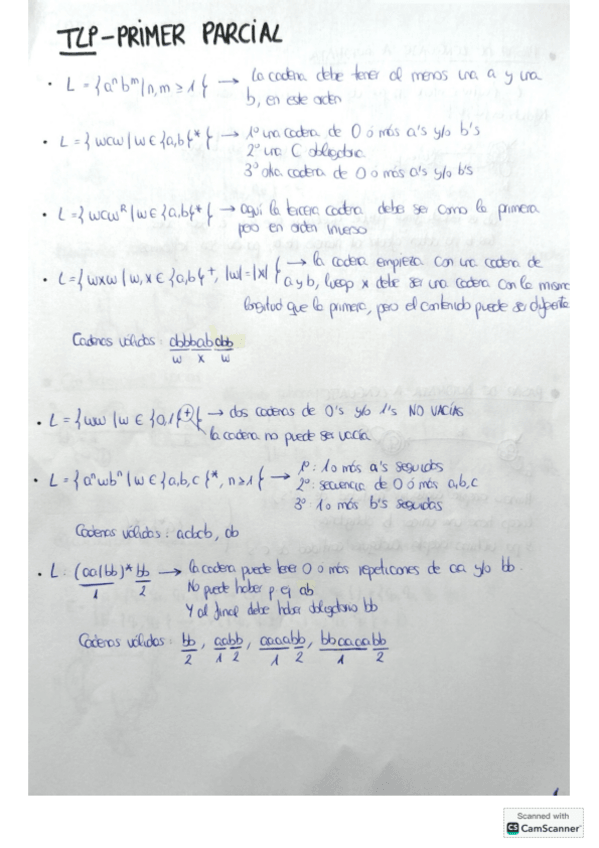 TLP-PRIMER PARCIAL
• L = {aⁿbᵐ | n,m ≥ 1} → la cadena debe tener al menos una a y una
b, en este orden
• L = {wcw | w ∈ {a,b}*} → 1º una cadena de 0 ó más a's y/o b's
2º una C obligatoria
3º otra cadena de 0 ó más a's y/o b's
• L = {wcwᴿ | w ∈ {a,b}*} → aquí la tercera cadena debe ser como la primera
pero en orden inverso
• L = {wxw | w,x ∈ {a,b}⁺, |w|=|x|} → la cadena empieza con una cadena de
a y b, luego x debe ser una cadena con la misma
longitud que la primera, pero el contenido puede ser diferente
Cadenas válidas: abbbababb
w x w
• L = {ww | w ∈ {0,1}⁺} → dos cadenas de 0's y/o 1's NO VACÍAS
la cadena no puede ser vacía
• L = {aⁿwbⁿ | w ∈ {a,b,c}*, n≥1} → 1º: 1 o más a's seguidas
2º: secuencia de 0 ó más a,b,c
3º 1 o más b's seguidas
Cadenas válidas: acbcb, ab
• L: (aa|bb)* bb → la cadena puede tener 0 ó más repeticiones de aa y/o bb.
1 2
No puede haber p ej ab
Y al final debe haber obligatorio bb
Cadenas válidas: bb, aabb, aaaabb, bbaaaabb
2 1 2 1 2 1 2
Scanned with
CS CamScanner